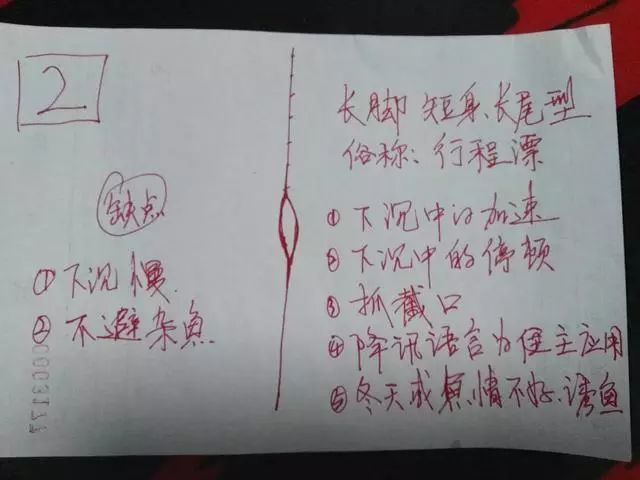 2
缺点
①下沉慢
②不避杂鱼
0000317
长脚 短身 长尾型
俗称：行程漂
①下沉中的加速
②下沉中的停顿
③抓截口
④降讯语言为便主应用
⑤冬天或鱼情不好、诱鱼